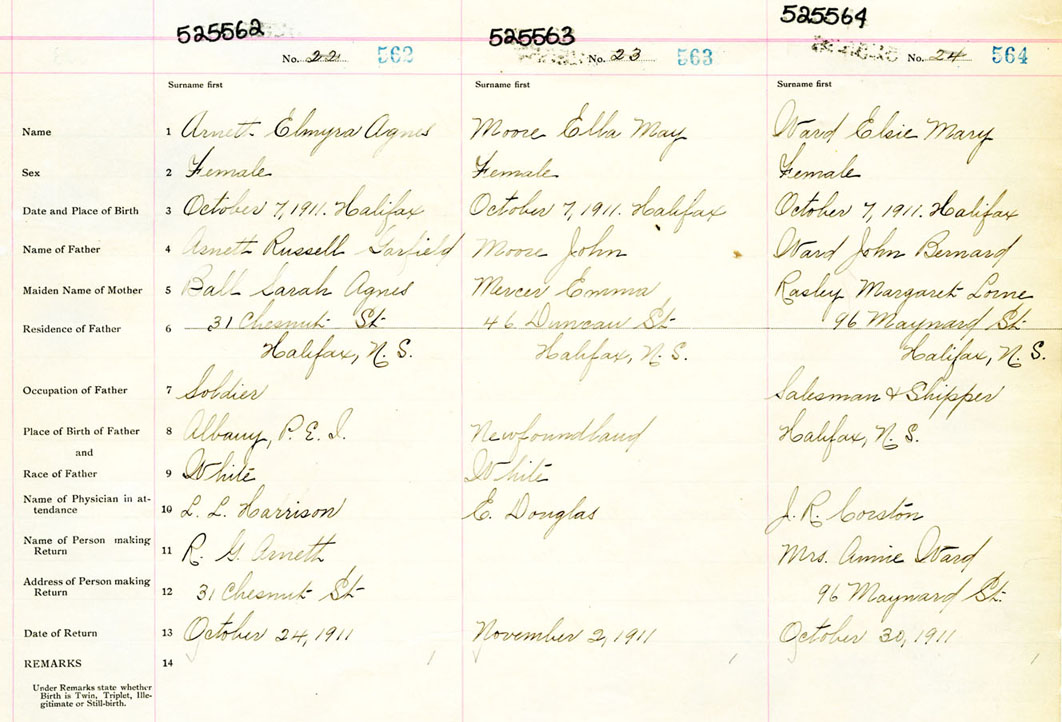 525562 525563 525564
No. 22 562 No. 23 563 No. 24 564
Surname first Surname first Surname first
Name 1 Arnett Elmyra Agnes Moore Ella May Ward Elsie Mary
Sex 2 Female Female Female
Date and Place of Birth 3 October 7, 1911. Halifax October 7, 1911. Halifax October 7, 1911. Halifax
Name of Father 4 Arnett Russell Garfield Moore John Ward John Bernard
Maiden Name of Mother 5 Ball Sarah Agnes Mercer Emma Rasley Margaret Lorne
Residence of Father 6 31 Chesnut St 46 Duncan St 96 Maynard St.
Halifax, N. S. Halifax, N. S. Halifax, N. S.
Occupation of Father 7 Soldier Salesman & Shipper
Place of Birth of Father 8 Albany, P. E. I. Newfoundland Halifax, N. S.
and
Race of Father 9 White White
Name of Physician in at-
tendance 10 L. L. Harrison E. Douglas J. R. Corston
Name of Person making
Return 11 R. G. Arnett Mrs. Annie Ward
Address of Person making
Return 12 31 Chesnut St 96 Maynard St.
Date of Return 13 October 24, 1911 November 2, 1911 October 30, 1911
REMARKS 14
Under Remarks state whether
Birth is Twin, Triplet, Ille-
gitimate or Still-birth.